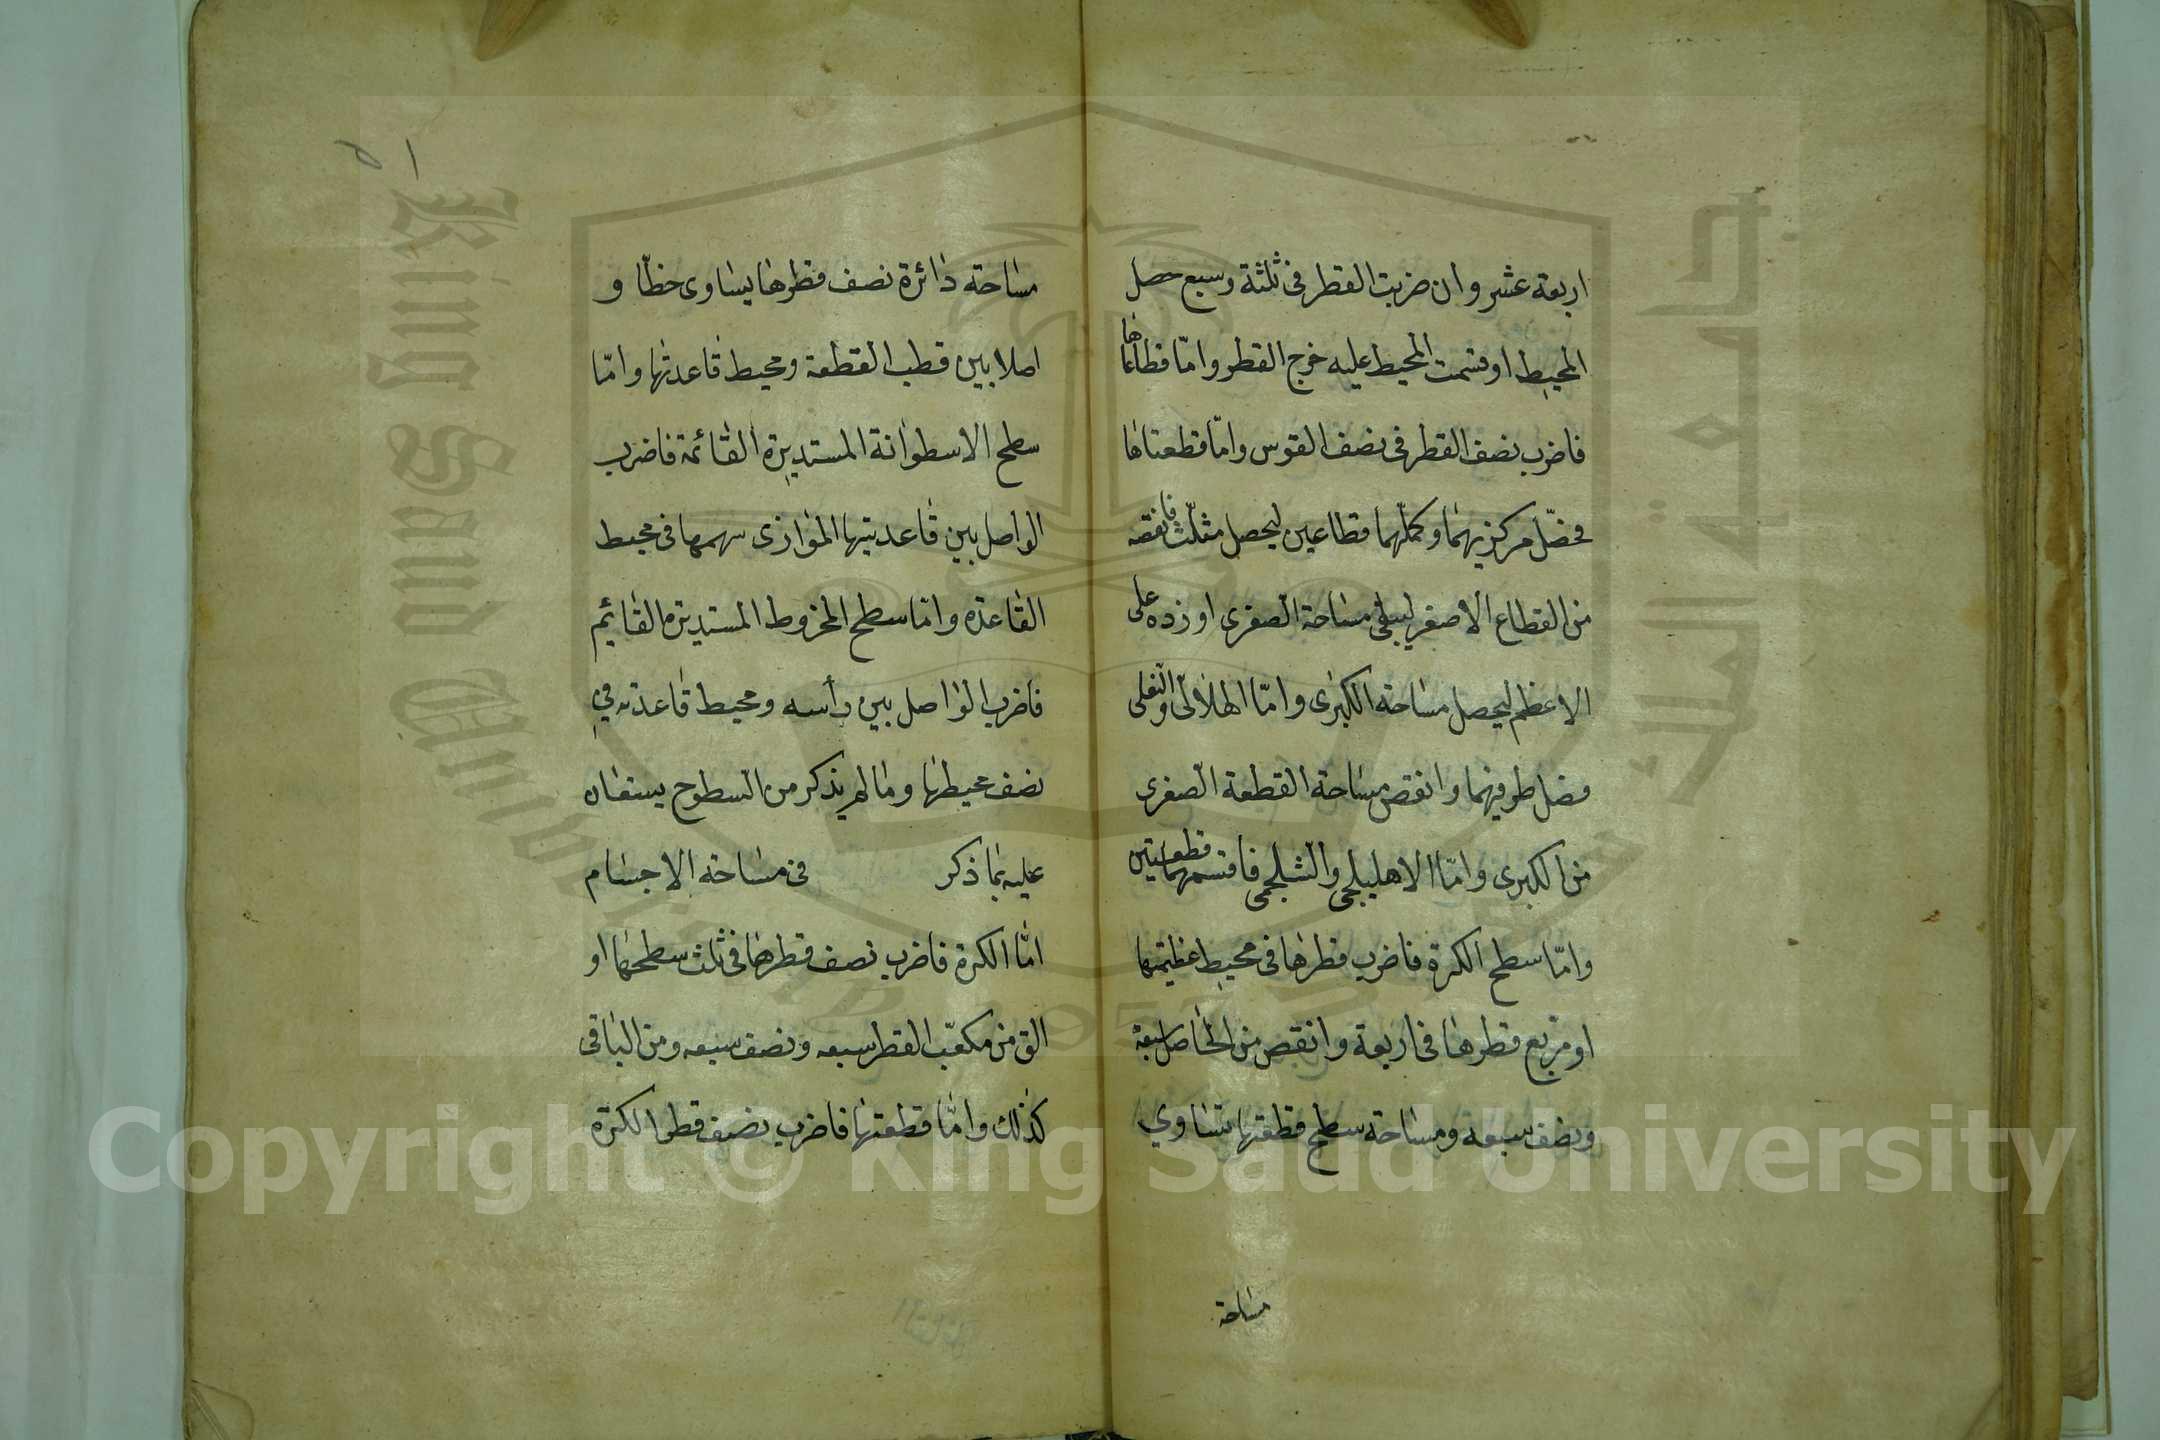 اربعة عشر وان ضربت القطر فى ثلثة وسبع حصل
المحيط او قسمت المحيط عليه خرج القطر وامّا قطاعاها
فاضرب نصف القطر فى نصف القوس وامّا قطعتاها
فحصّل مركزيهما وكمّلهما قطاعين ليحصل مثلّث فانقصه
من القطاع الاصغر ليبقى مساحة الصغرى او زده على
الاعظم ليحصل مساحة الكبرى وامّا الهلالى والنعلى
فصل طرفيهما وانقص مساحة القطعة الصغرى
من الكبرى وامّا الاهليلجى والشلجمى فاقسمهما قطعتين
وامّا سطح الكرة فاضرب قطرها فى محيط عظيمتها
او مربّع قطرها فى اربعة وانقص من الحاصل سبعه
ونصف سبعه ومساحة سطح قطعتها تساوي
مساحة
مساحة دائرة نصف قطرها يساوى خطّا و
اصلا بين قطب القطعة ومحيط قاعدتها وامّا
سطح الاسطوانة المستديرة القائمة فاضرب
الواصل بين قاعدتيها الموازى سهمها فى محيط
القاعده وامّا سطح المخروط المستديره القائم
فاضرب الواصل بين رأسه ومحيط قاعدته في
نصف محيطها وما لم يذكر من السطوح يستعان
عليه بما ذكر فى مساحة الاجسام
امّا الكرة فاضرب نصف قطرها فى ثلث سطحها او
الق من مكعّب القطر سبعه ونصف سبعه ومن الباقى
كذلك وامّا قطعتها فاضرب نصف قطر الكرة
King Saud University
جامعة الملك سعود
1957
Copyright © King Saud University